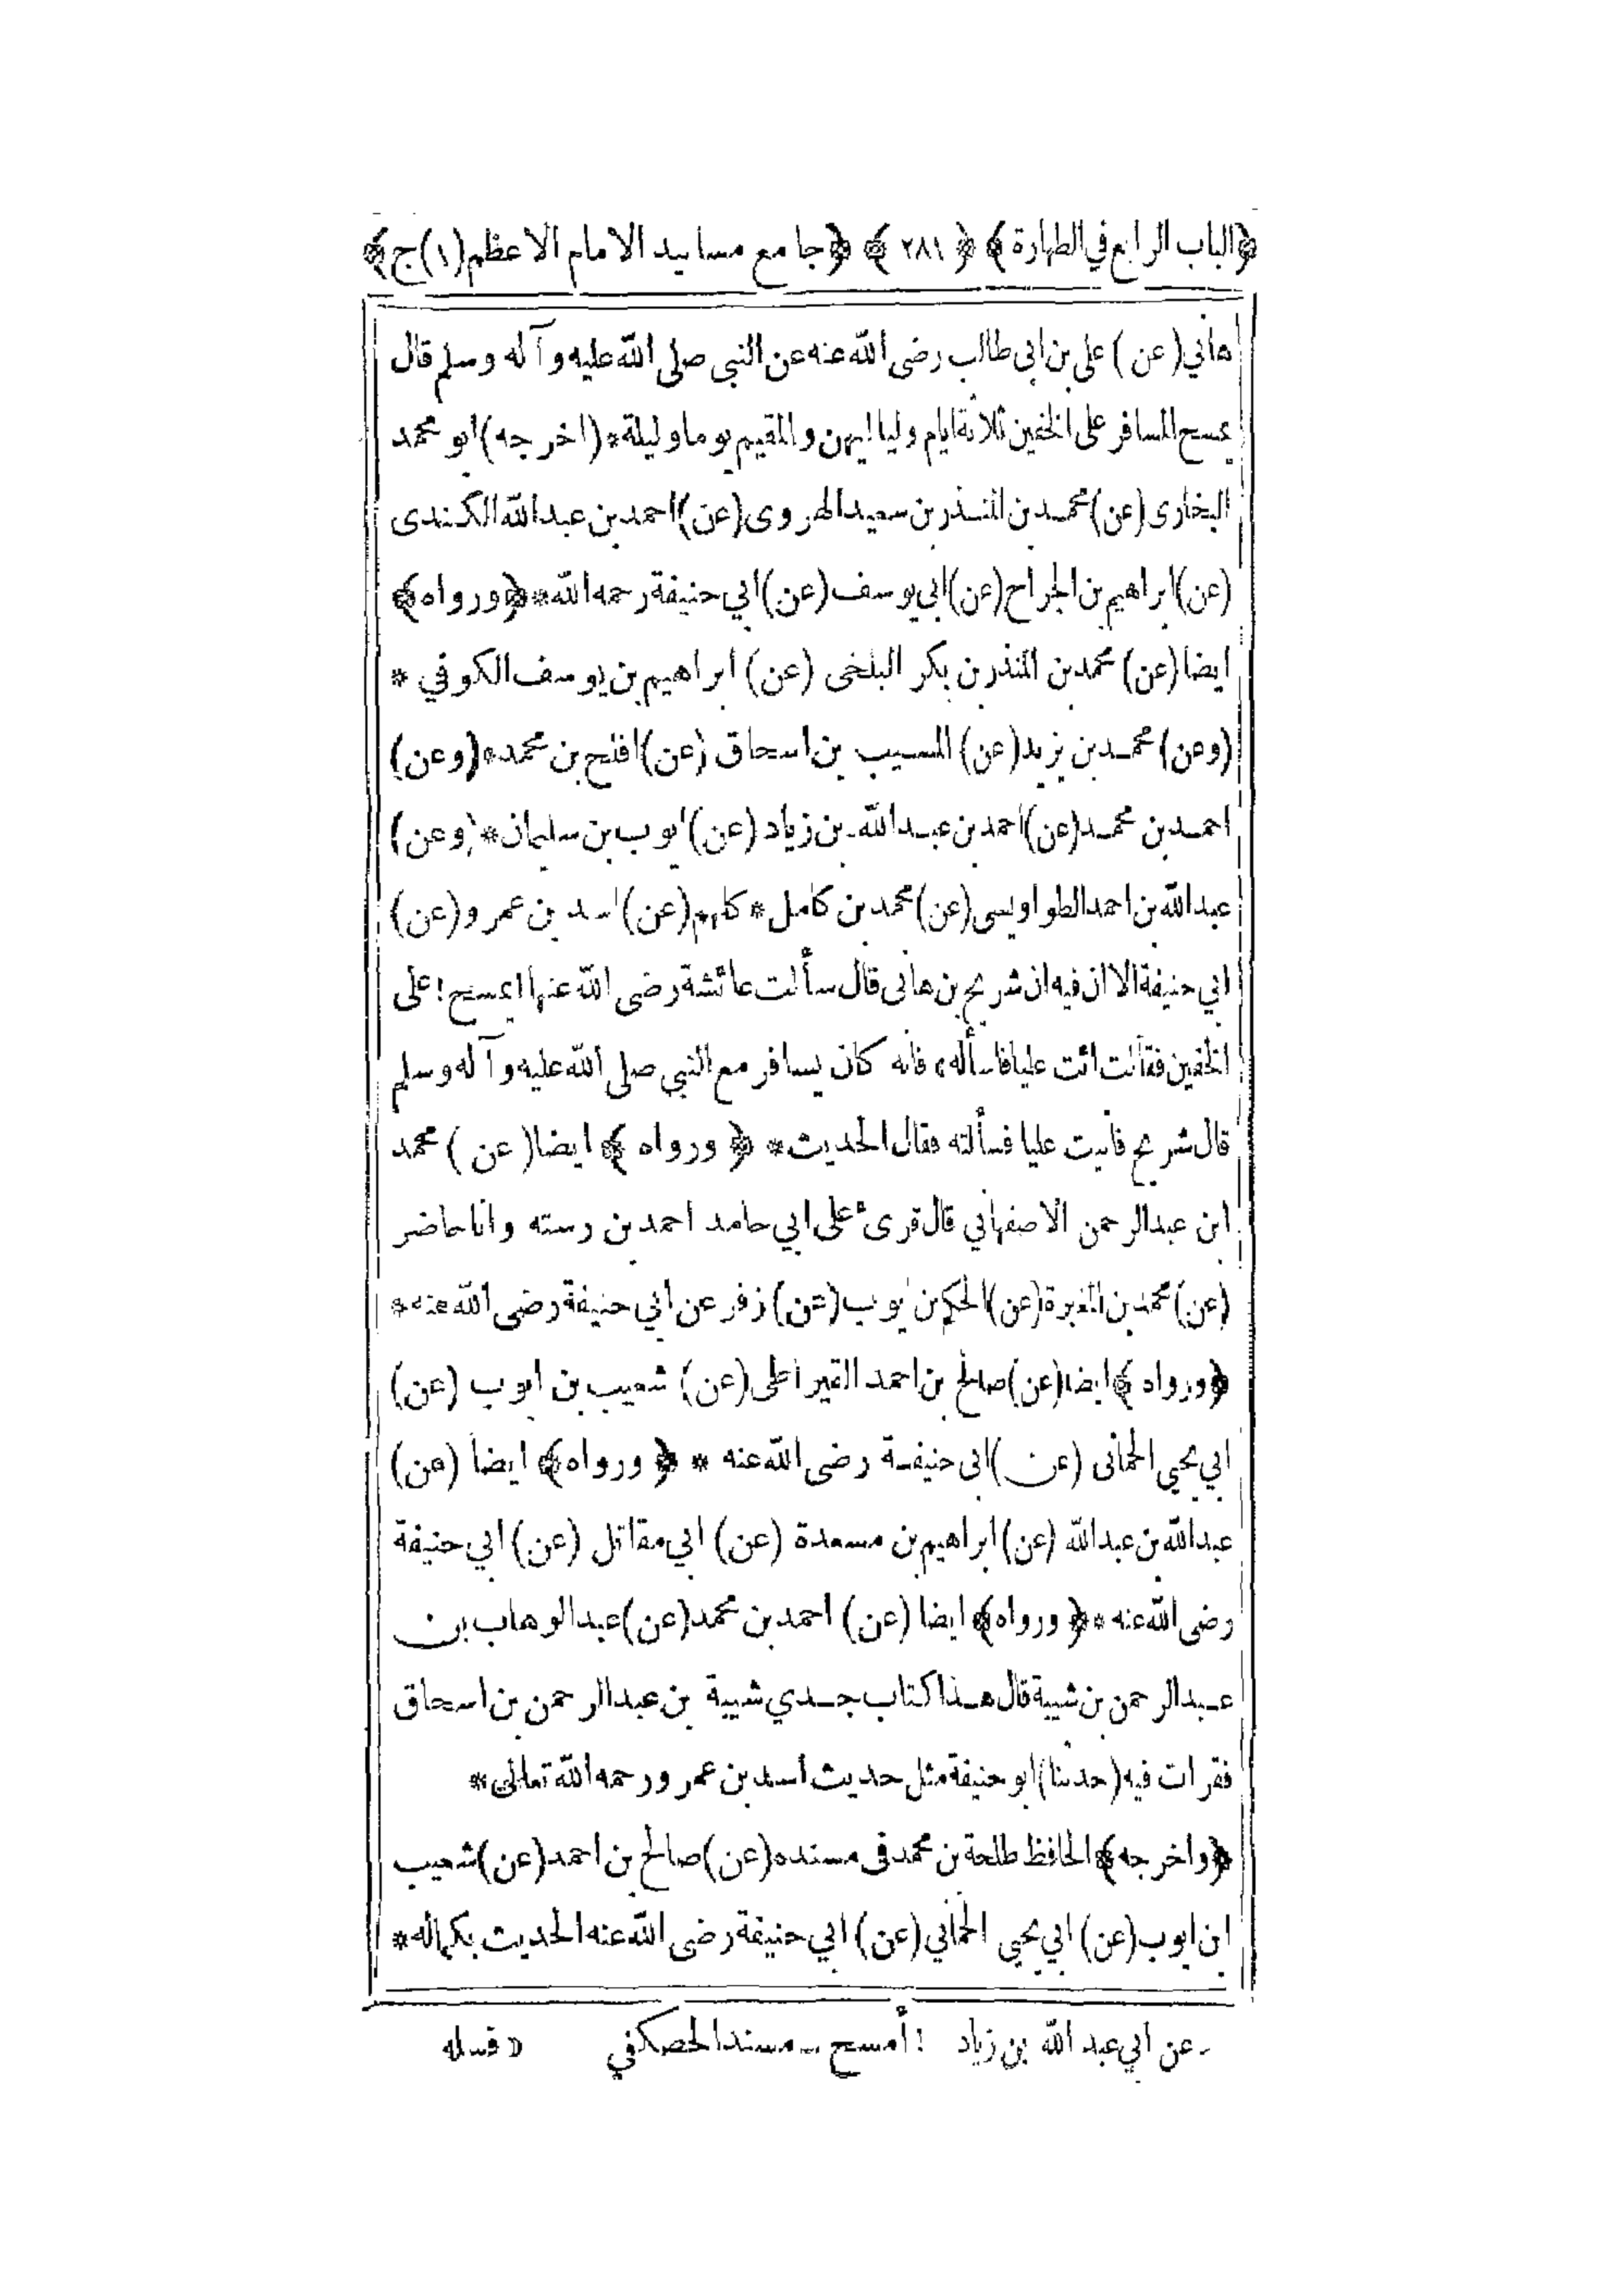 ﴿الباب الرابع في الطهارة﴾ ﴿٢٨١﴾ ﴿جامع مسانيد الامام الاعظم(١)ج﴾
هانی(عن) علی بن ابی طالب رضی الله عنه عن النبی صلی الله علیه وآله وسلم قال
يمسح المسافر على الخفين ثلاثة ايام ولياليهن والمقيم يوما وليلة*(اخرجه)ابو محمد
البخاری(عن)محمد بن المنذر بن سعيد الهروی(عن)احمد بن عبدالله الكندی
(عن)ابراهيم بن الجراح(عن)ابي يوسف(عن)ابي حنيفة رحمه الله*﴿ورواه﴾
ايضا(عن) محمد بن المنذر بن بكر البلخی (عن) ابراهيم بن يوسف الكوفي *
(وعن)محمد بن يزيد(عن) المسيب بن اسحاق (عن)افلح بن محمد*(وعن)
احمد بن محمد(عن)احمد بن عبدالله-بن زياد(عن)ايوب بن سليمان*(وعن)
عبدالله بن احمد الطواويسی(عن)محمد بن كامل*كلهم(عن)اسد بن عمرو(عن)
ابي حنيفة الا ان فيه ان شريح بن هانی قال سألت عائشة رضی الله عنها ايمسح!على
الخفين فقالت ائت عليا فاسأله» فانه كان يسافر مع النبي صلى الله عليه وآله وسلم
قال شريح فاتيت عليا فسألته فقال الحديث* ﴿ورواه﴾ ايضا(عن) محمد
ابن عبدالرحمن الاصفهاني قال قرئ على ابي حامد احمد بن رسته وانا حاضر
(عن)محمد بن المغيرة(عن)الحكم بن ايوب(عن)زفر عن ابي حنيفة رضی الله عنه*
﴿ورواه﴾ايضا(عن)صالح بن احمد القيراطی(عن) شعيب بن ايوب (عن)
ابي يحيى الحمانی (عن)ابی حنيفة رضی الله عنه * ﴿ورواه﴾ ايضا (عن)
عبدالله بن عبدالله (عن)ابراهيم بن مسعدة (عن) ابي مقاتل (عن) ابي حنيفة
رضی الله عنه *﴿ورواه﴾ ايضا (عن) احمد بن محمد(عن)عبدالوهاب بن
عبدالرحمن بن شيبة قال هذا كتاب جدي شيبة بن عبدالرحمن بن اسحاق
فقرات فيه (حدثنا)ابو حنيفة مثل حديث اسد بن عمرو رحمه الله تعالی*
﴿واخرجه﴾ الحافظ طلحة بن محمد فی مسنده(عن)صالح بن احمد(عن)شعيب
ابن ايوب(عن) ابي يحيى الحماني(عن) ابي حنيفة رضی الله عنه الحديث بكماله*
- عن ابي عبد الله بن زياد ! أمسح - مسند الحصكفي » فسله